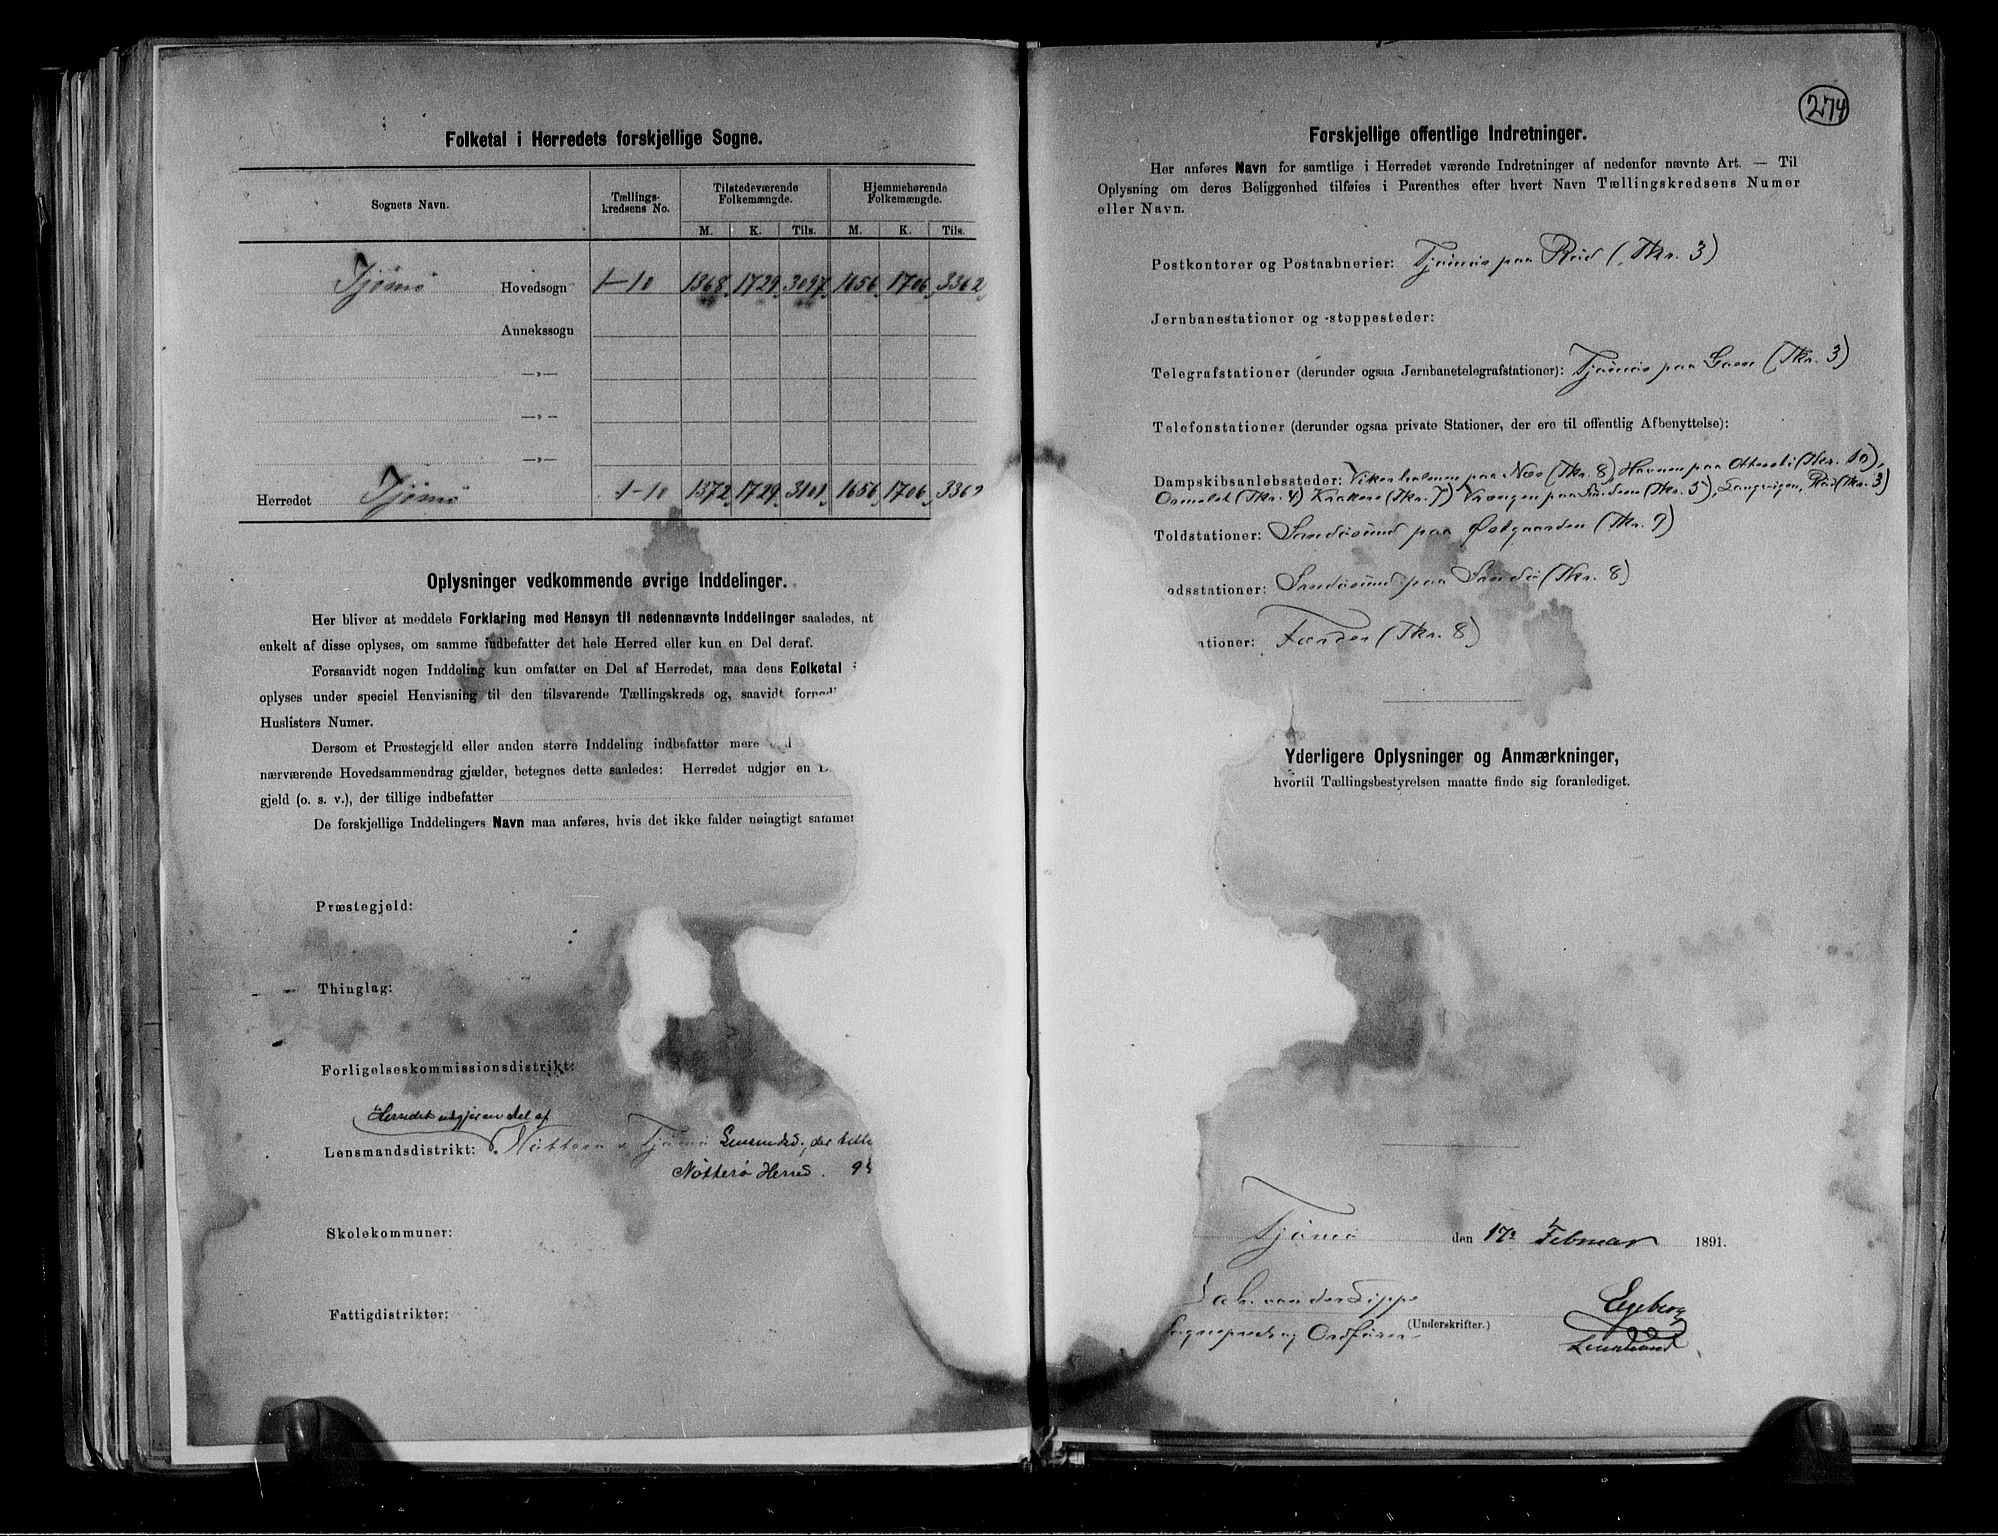 Folketal i Herredets forskjellige Sogne.
Sognets Navn. Tællings- kredsens No. Tilstedeværende Folkemængde. Hjemmehørende Folkemængde.
M. K. Tils. M. K. Tils.
Tjømø Hovedsogn 1-10 1368 1729 3097 1656 1706 3362
Annekssogn
—„—
—„—
—„—
Herredet Tjømø 1-10 1372 1729 3101 1656 1706 336
Oplysninger vedkommende øvrige Inddelinger.
Her bliver at meddele Forklaring med Hensyn til nedennævnte Inddelinger saaledes, at
enkelt af disse oplyses, om samme indbefatter det hele Herred eller kun en Del deraf.
Forsaavidt nogen Inddeling kun omfatter en Del af Herredet, maa dens Folketal
oplyses under speciel Henvisning til den tilsvarende Tællingskreds og, saavidt
Huslisters Numer.
Dersom et Præstegjeld eller anden større Inddeling indbefatter mere
nærværende Hovedsammendrag gjælder, betegnes dette saaledes: Herredet udgjør en
gjeld (o. s. v.), der tillige indbefatter
De forskjellige Inddelingers Navn maa anføres, hvis det ikke falder nøiagtigt sammen
Præstegjeld:
Thinglag:
Forligelseskommissionsdistrikt:
Herredet udgjør en del af
Lensmandsdistrikt: Nøtterø & Tjømø Lensmdsd., der
Nøtterø Herred.
Skolekommuner:
Fattigdistrikter:
274
Forskjellige offentlige Indretninger.
Her anføres Navn for samtlige i Herredet værende Indretninger af nedenfor nævnte Art. — Til
Oplysning om deres Beliggenhed tilføies i Parenthes efter hvert Navn Tællingskredsens Numer
eller Navn.
Postkontorer og Postaabnerier: Tjømø paa Rød (Tkr. 3)
Jernbanestationer og -stoppesteder:
Telegrafstationer (derunder ogsaa Jernbanetelegrafstationer): Tjømø paa (Tkr. 3)
Telefonstationer (derunder ogsaa private Stationer, der ere til offentlig Afbenyttelse):
Dampskibsanløbssteder: Vikerholmen paa Næs (Tkr. 8), Havnen paa (Tkr. 10),
Ormelet (Tkr. 4) Krakere (Tkr. 7) Vrængen paa Sundene (Tkr. 5), Langvigen, Rød (Tkr. 3)
Toldstationer: Sandøsund paa Østgaarden (Tkr. 9)
odsstationer: Sandøsund paa Sandø (Tkr. 8)
ationer: Færder (Tkr. 8)
Yderligere Oplysninger og Anmærkninger,
hvortil Tællingsbestyrelsen maatte finde sig foranlediget.
Tjømø den 17de Februar 1891.
Jah. von der Lippe Egeberg
Sognepræst og Ordfører (Underskrifter.) Lensmand